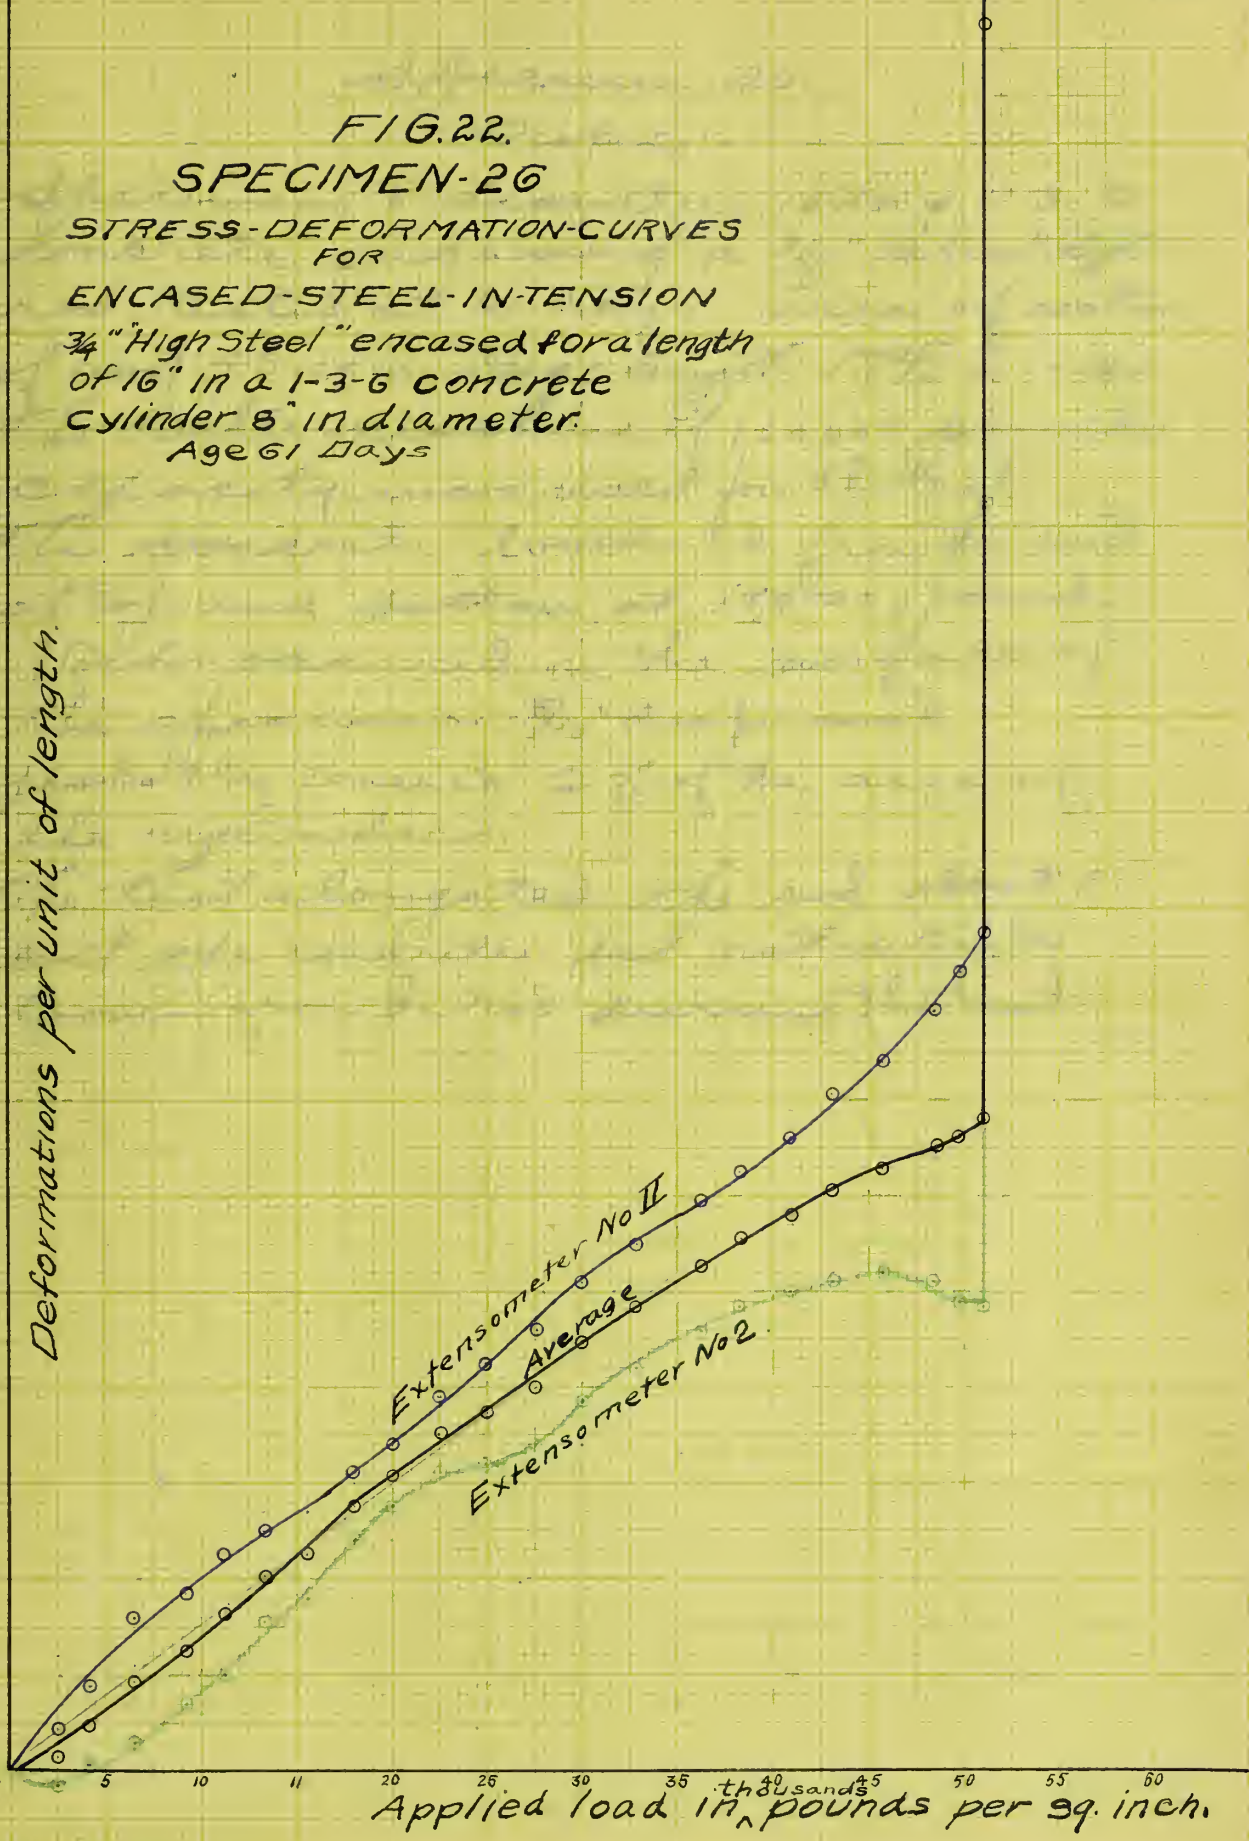 FIG.22.
SPECIMEN-26
STRESS-DEFORMATION-CURVES
FOR
ENCASED-STEEL-IN-TENSION
3/4" "High Steel" encased for a length
of 16" in a 1-3-6 concrete
cylinder 8" in diameter.
Age 61 Days
Deformations per unit of length.
Extensometer No II
Average
Extensometer No 2
5 10 11 20 25 30 35 40 45 50 55 60
thousands
Applied load in ^ pounds per sq. inch.